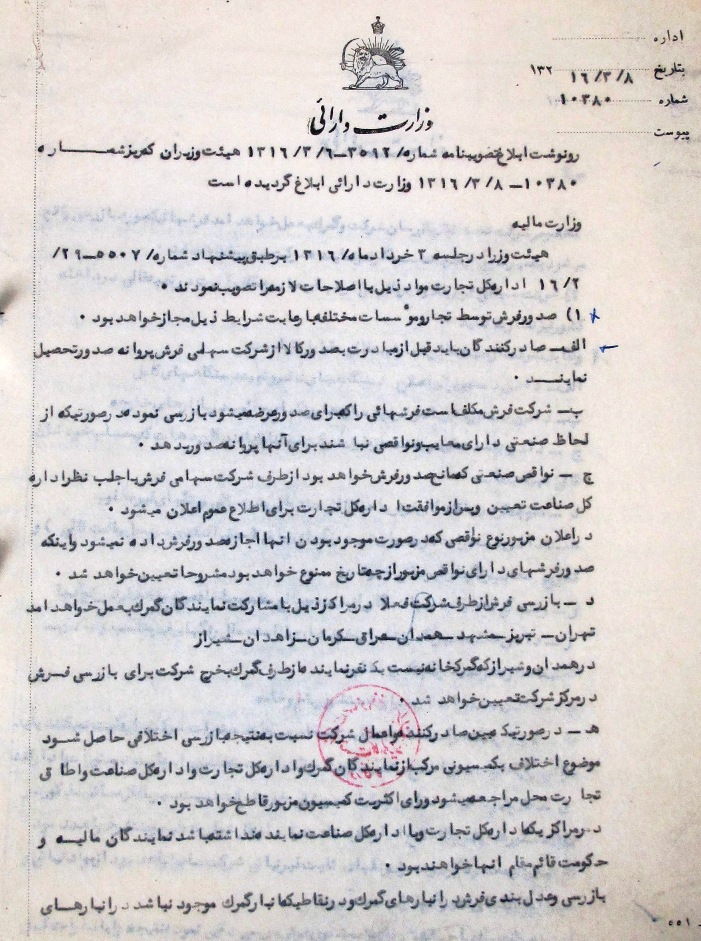 اداره
بتاریخ ۱۶/۳/۸ ۱۳۲
شماره ۱۰۳۸۰
پیوست
وزارت دارائی
رونوشت ابلاغ تصویبنامه شماره/ ۳۵۱۲–۱۳۱۶/۳/۶ هیئت وزیران که بزشمـــــاره
۱۰۳۸۰– ۱۳۱۶/۳/۸ وزارت دارائی ابلاغ گردیده است
وزارت مالیه
هیئت وزراء در جلسه ۳ خرداد ماه/ ۱۳۱۶ برطبق پیشنهاد شماره/ ۵۵۰۷–۲۹/
۱۶/۲ اداره کل تجارت مواد ذیل با اصلاحات لازمه را تصویب نمودند ۰
۱) صدور فرش توسط تجار و موسسات مختلفه با رعایت شرایط ذیل مجاز خواهد بود ۰
الف– صادر کنندگان باید قبل از مبادرت بصدور کالا از شرکت سهامی فرش پروانه صدور تحصیل
نماینـــد ۰
ب– شرکت فرش مکلف است فرشهائی را که برای صدور عرضه میشود بازرسی نموده در صورتیکه از
لحاظ صنعتی دارای معایب و نواقصی نباشند برای آنها پروانه صدور بدهد ۰
ج – نواقص صنعتی که مانع صدور فرش خواهد بود از طرف شرکت سهامی فرش با جلب نظر اداره
کل صناعت تعیین و پس از موافقت اداره کل تجارت برای اطلاع عموم اعلان میشود ۰
در اعلان مزبور نوع نواقصی که در صورت موجود بودن انها اجازه صدور فرش داده نمیشود و اینکه
صدور فرشهای دارای نواقص مزبور از چه تاریخ ممنوع خواهد بود مشروحا تعیین خواهد شد ۰
د – بازرسی فرش از طرف شرکت فعلا در مراکز ذیل با مشارکت نمایندگان گمرک بعمل خواهد امد
تهران– تبریز– مشهد– همدان– عراق– کرمان– زاهدان– شیراز
در همدان و شیراز که گمرکخانه نیست یک نفر نماینده از طرف گمرک بخرج شرکت برای بازرسی فـرش
در مرکز شرکت تعیین خواهد شد
هـ – در صورتیکه بین صادر کننده و عمال شرکت نسبت به نتیجه بازرسی اختلافی حاصل شـود
موضوع اختلاف بکمیسیونی مرکب از نمایندگان گمرک و اداره کل تجارت و اداره کل صناعت و اطاق
تجارت محل مراجعه میشود و رای اکثریت کمیسیون مزبور قاطع خواهد بود ۰
در مراکزیکه اداره کل تجارت و یا اداره کل صناعت نماینده نداشته باشد نمایندگان مالیـه و
حکومت قائم مقام انها خواهند بود ۰
بازرسی و عدل بندی فرش در انبارهای گمرک و در نقاطیکه انبار گمرک موجود نباشد در انبارهـای
۵۵۱